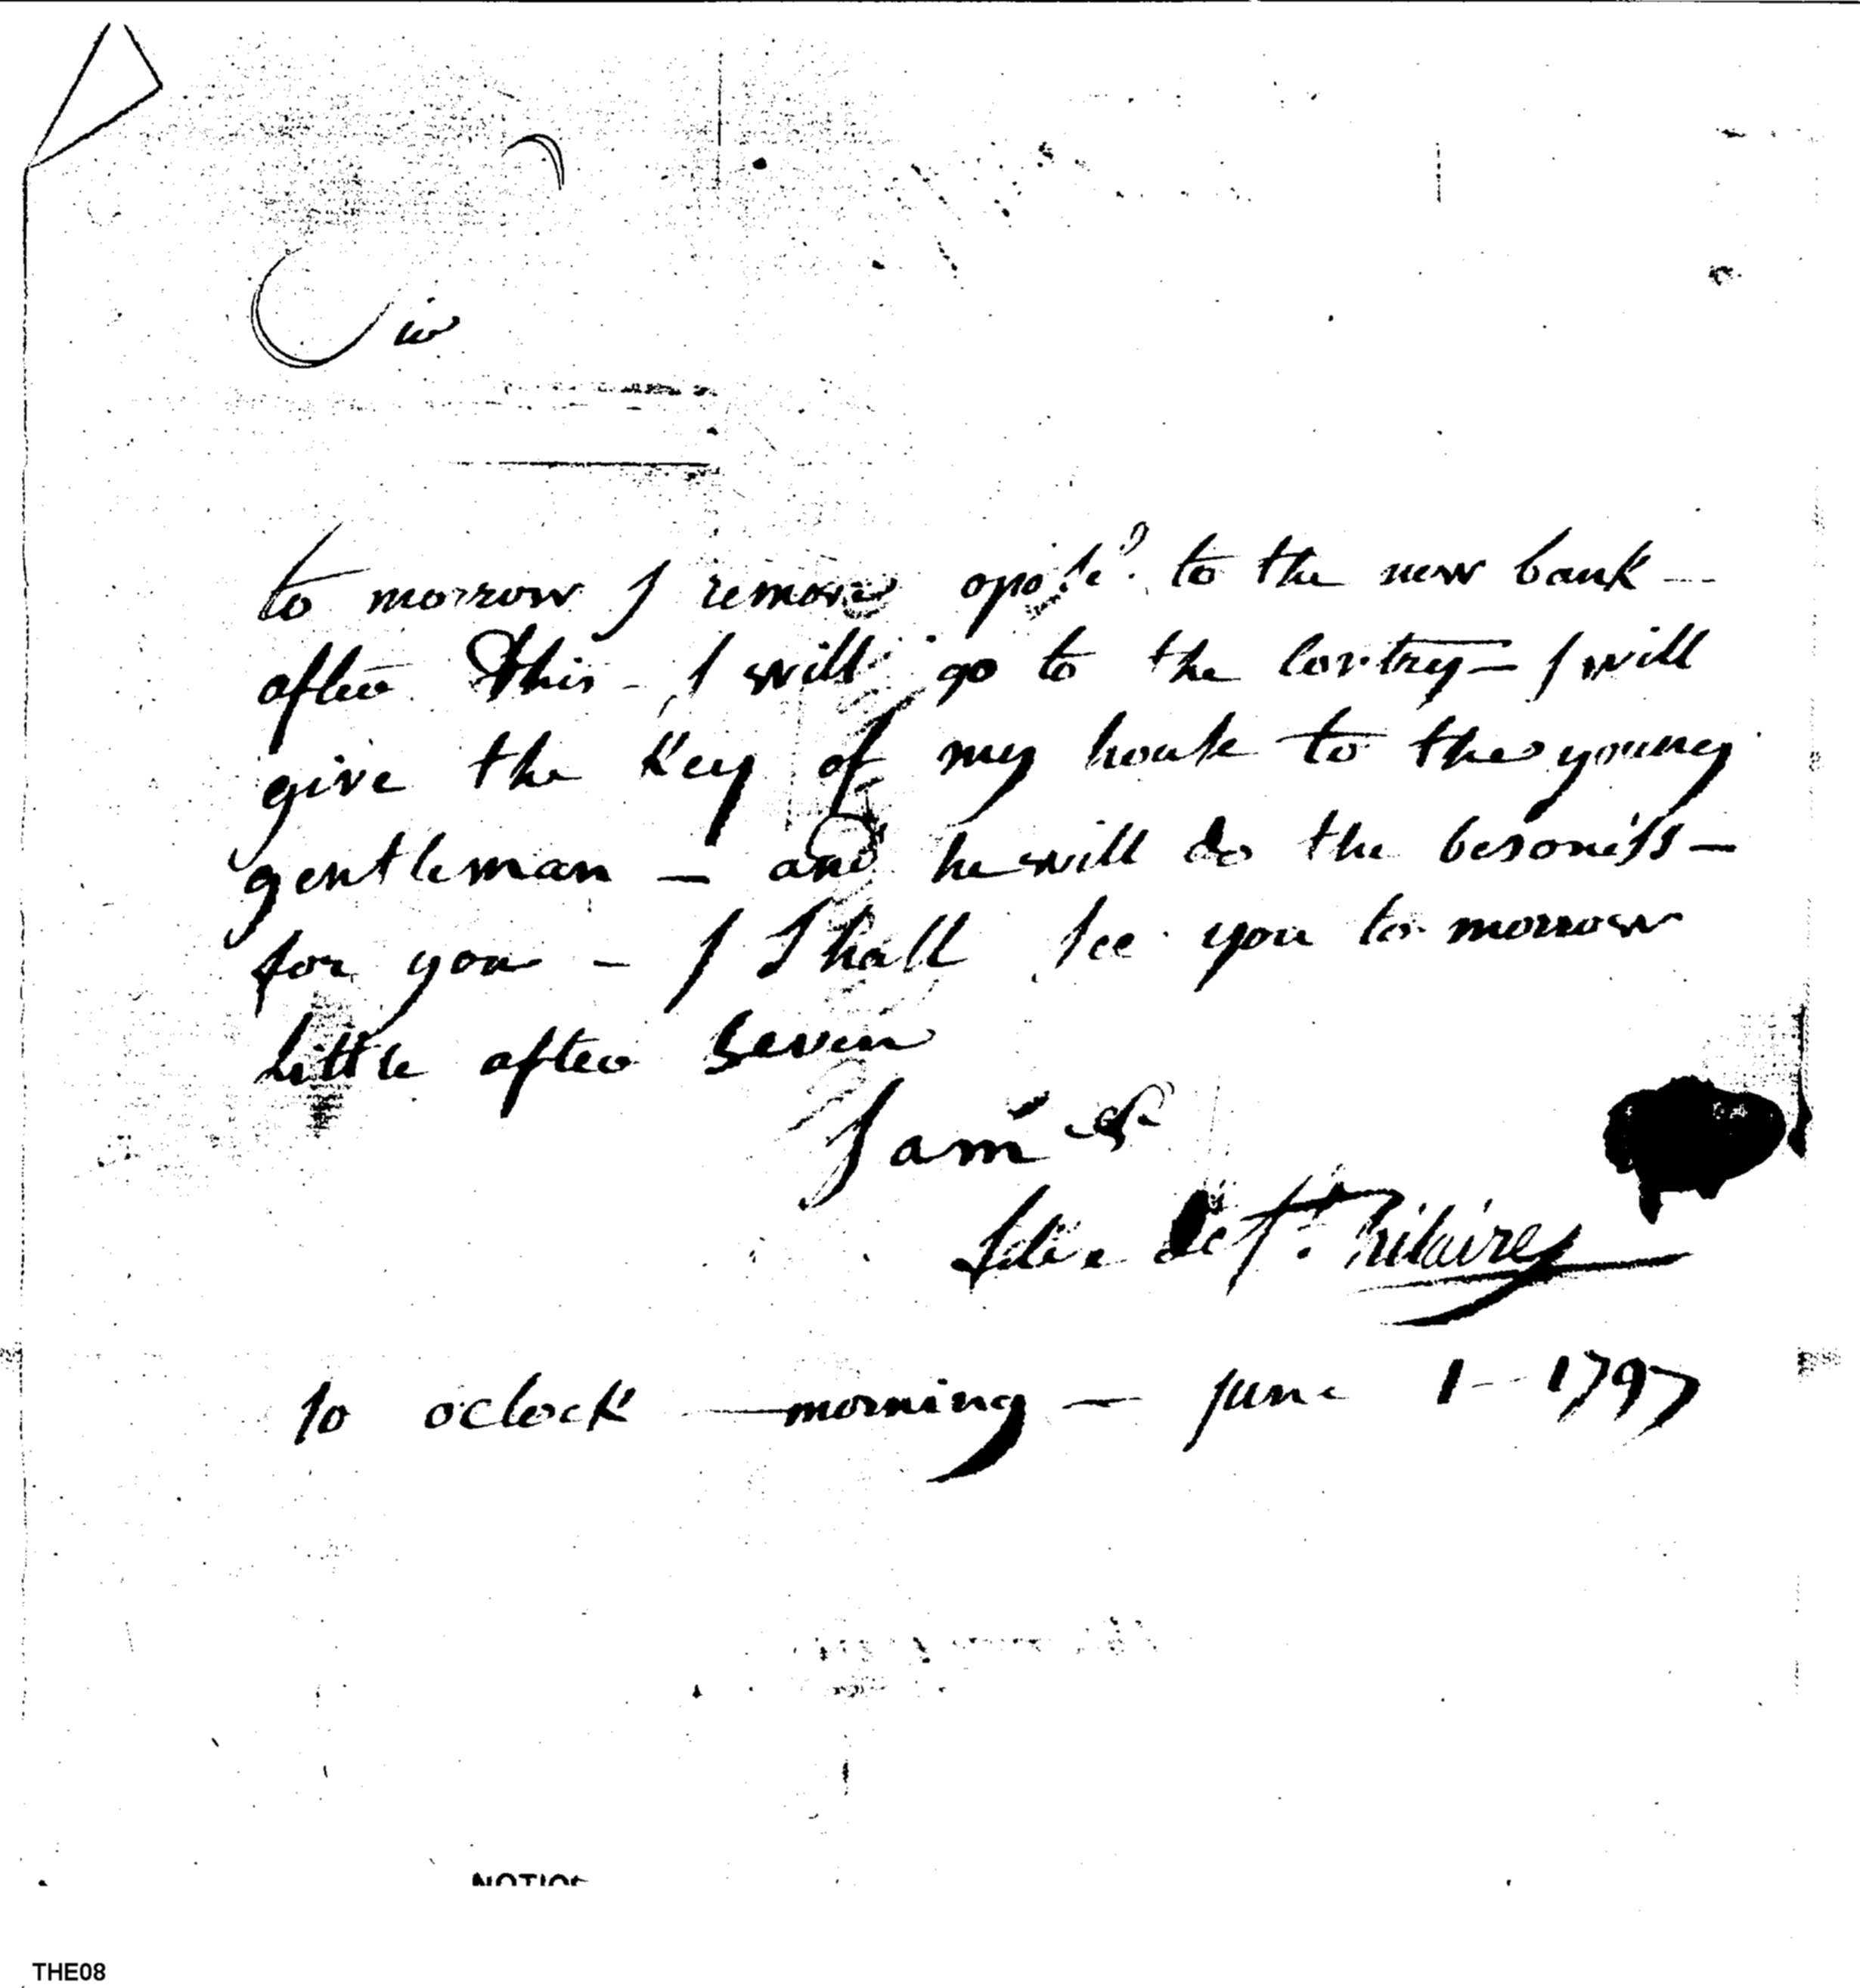 Sir
to morrow I remove to the new bank —
after this - I will go to the contrey — I will
give the key of my house to the young
gentleman — and he will do the besoness —
for you - I Shall see you to morrow
little after Seven
I am &
de St. hilaire
10 oclock — morning — june 1 - 1797
THE08